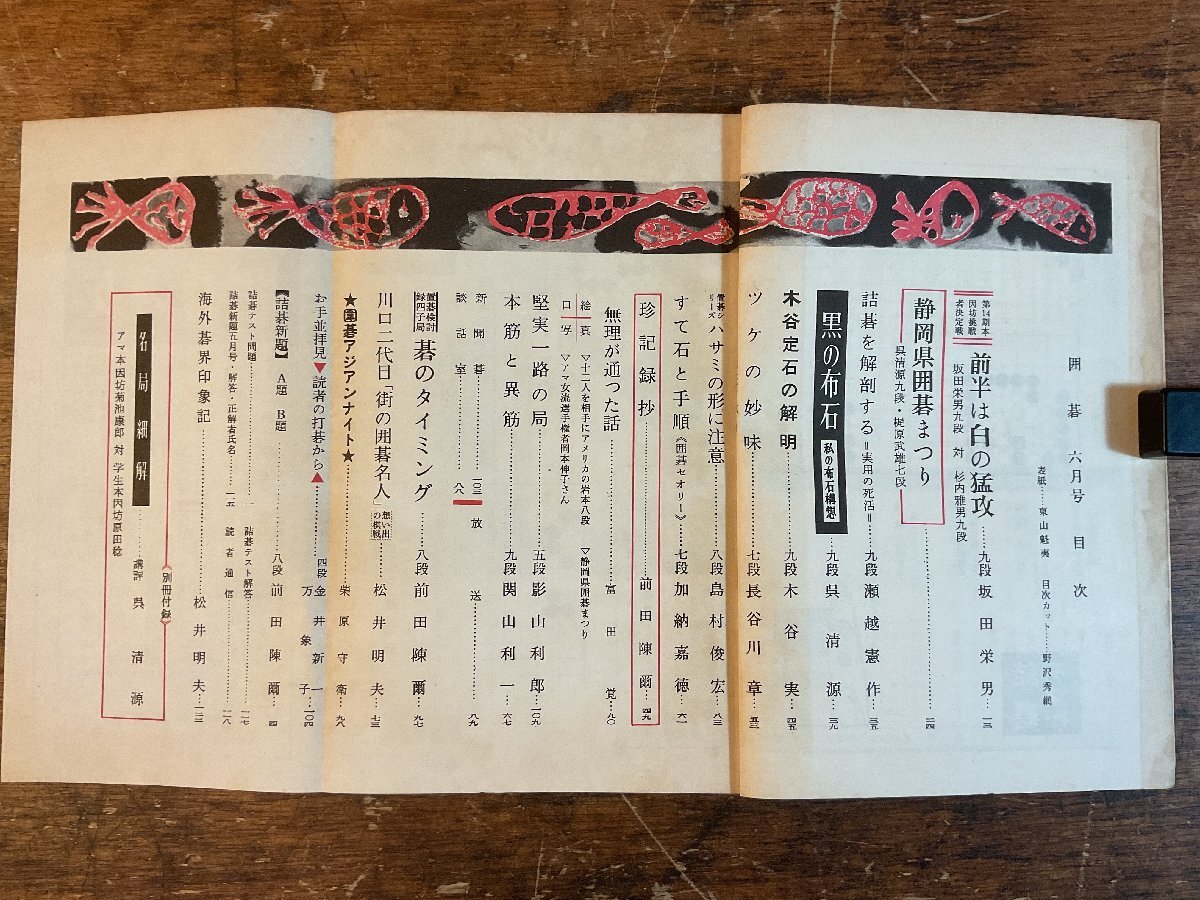 囲碁 六月号 目次
表紙……東山魁夷 目次カット……野沢秀網
第14期本因坊挑戦者決定戦
前半は白の猛攻……九段 坂田栄男…一三
坂田栄男九段 対 杉内雅男九段
静岡県囲碁まつり……二四
呉清源九段・梶原武雄七段
詰碁を解剖する=実用の死活=…九段 瀬越憲作…三五
黒の布石 私の布石構想…九段 呉清源…三九
木谷定石の解明……九段 木谷実…四五
ツケの妙味……七段 長谷川章…五三
置碁シリーズ ハサミの形に注意……八段 島村俊宏…八三
すて石と手順《囲碁セオリー》…七段 加納嘉徳…六一
珍記録抄……前田陳爾…四九
無理が通った話……富田覚…九〇
絵 真 ▽十二人を相手にアメリカの岩本八段 ▽静岡県囲碁まつり
口 写 ▽アマ女流選手権者岡本伸子さん
堅実一路の局……五段 影山利郎…一〇九
本筋と異筋……九段 関山利一…六七
新聞碁……一〇三 放送……八九
談話室……八八
置碁検討録四子局 碁のタイミング……八段 前田陳爾…九七
川口二代目「街の囲碁名人」想い出の棋戦…松井明夫…七三
★囲碁アジアンナイト★……柴原守衛…九八
お手並拝見▼読者の打碁から▲……四段 金井新一 万象子…一〇四
【詰碁新題】 A題 B題……八段 前田陳爾…四
詰碁テスト問題……詰碁テスト解答……一一七
詰碁新題五月号・解答・正解者氏名…一一五 読者通信……一一八
海外碁界印象記……松井明夫…一二三
別冊付録
名局細解……講評 呉清源
アマ本因坊菊池康郎 対 学生本因坊原田稔